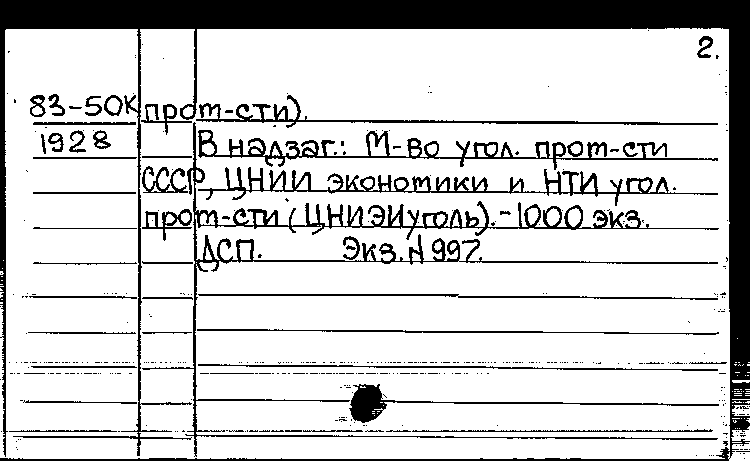 2.
83-50К пром-сти).
1928 В надзаг.: М-во угол. пром-сти
СССР, ЦНИИ экономики и НТИ угол.
пром-сти (ЦНИЭИуголь). - 1000 экз.
ДСП. Экз. N 997.